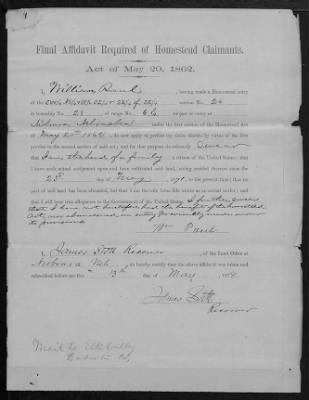 Final Affidavit Required of Homestead Claimants.
Act of May 20, 1862.
I, William Paul, having made a Homestead entry
of the section No. 20
in township No. 23 of range No. 6 subject to entry at
Niobrara Nebraska under the first section of the Homestead Act
of May 20th 1862 do now apply to perfect my claim thereto by virtue of the first
proviso to the second section of said act; and for that purpose do solemnly swear
that I am the head of a family a citizen of the United States; that I
have made actual settlement upon and have cultivated said land, having resided thereon since the
25th day of May, 1871, to the present time; that no
part of said land has been alienated, but that I am the sole bona fide owner as an actual settler; and
that I will bear true allegiance to the Government of the United States. I further swear
that I have not heretofore had the benefit of the homestead
Act, nor abandoned an entry previously made under
its provisions
Wm Paul
I, James Stott Receiver, of the Land Office at
Niobrara Neb, do hereby certify that the above affidavit was taken and
subscribed before me this 13th day of May, 1879.
James Stott
Receiver